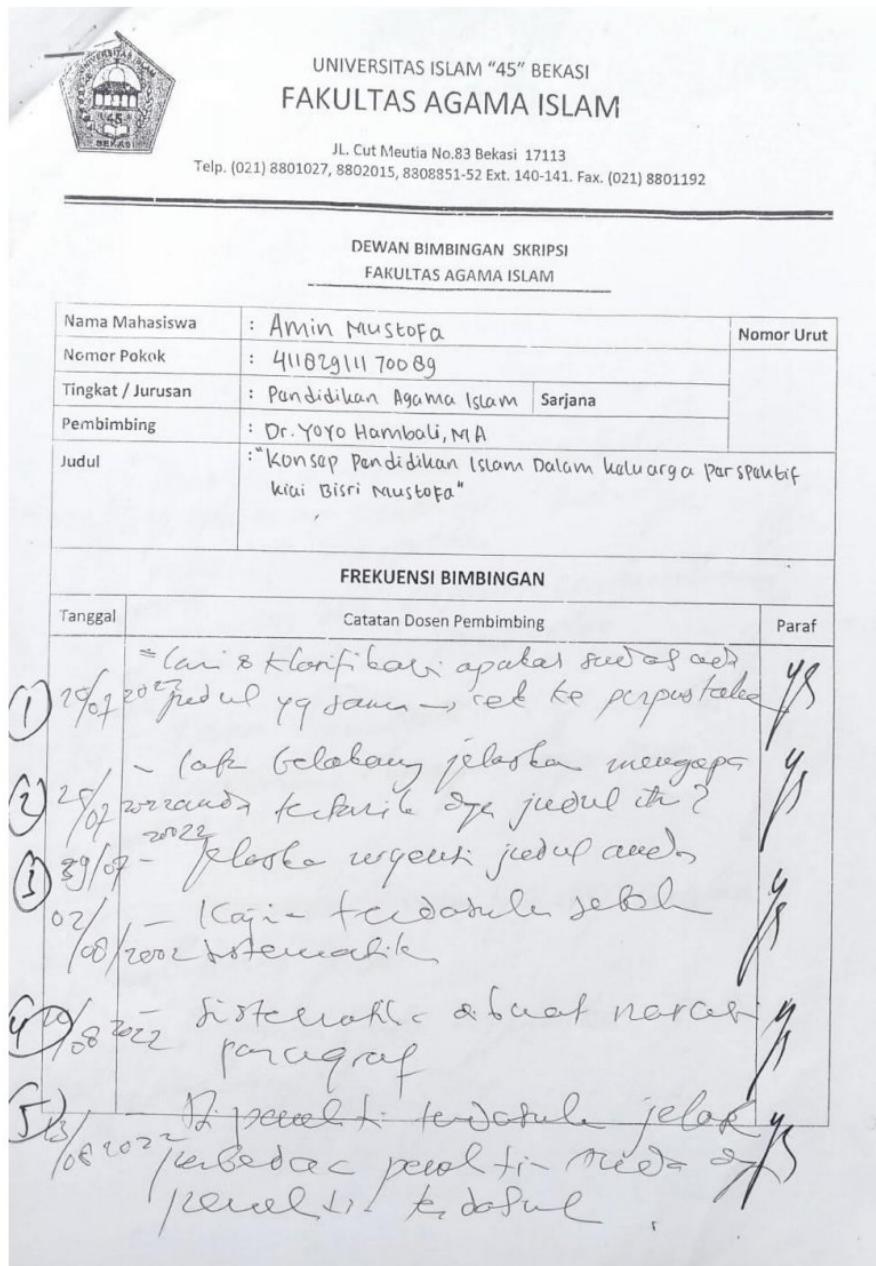 UNIVERSITAS ISLAM "45" BEKASI
FAKULTAS AGAMA ISLAM
JL. Cut Meutia No.83 Bekasi 17113
Telp. (021) 8801027, 8802015, 8308851-52 Ext. 140-141. Fax. (021) 8801192
DEWAN BIMBINGAN SKRIPSI
FAKULTAS AGAMA ISLAM
Nama Mahasiswa : Amin Mustofa Nomor Urut
Nomor Pokok : 41182911170089
Tingkat / Jurusan : Pendidikan Agama Islam Sarjana
Pembimbing : Dr. Yoyo Hambali, MA
Judul : "Konsep Pendidikan Islam Dalam keluarga Perspektif
kiai Bisri Mustofa"
FREKUENSI BIMBINGAN
Tanggal Catatan Dosen Pembimbing Paraf
klarifikasi apakah sudah ada
1 judul yg sama → cek ke perpustakaan
- jelaskan mengapa
2 anda tertarik judul itu?
3 2022 - Jelaskan urgensi judul anda
02/08/2002 - Kajian terdahulu
sistematik
4 08 2022 - Sistematika dibuat narasi
paragraf
5 13/08 2022 - terdahulu